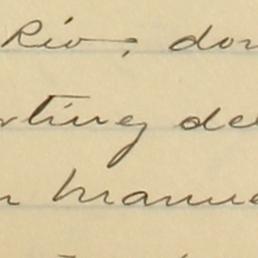 Rio; don
rtinez de
n Manue